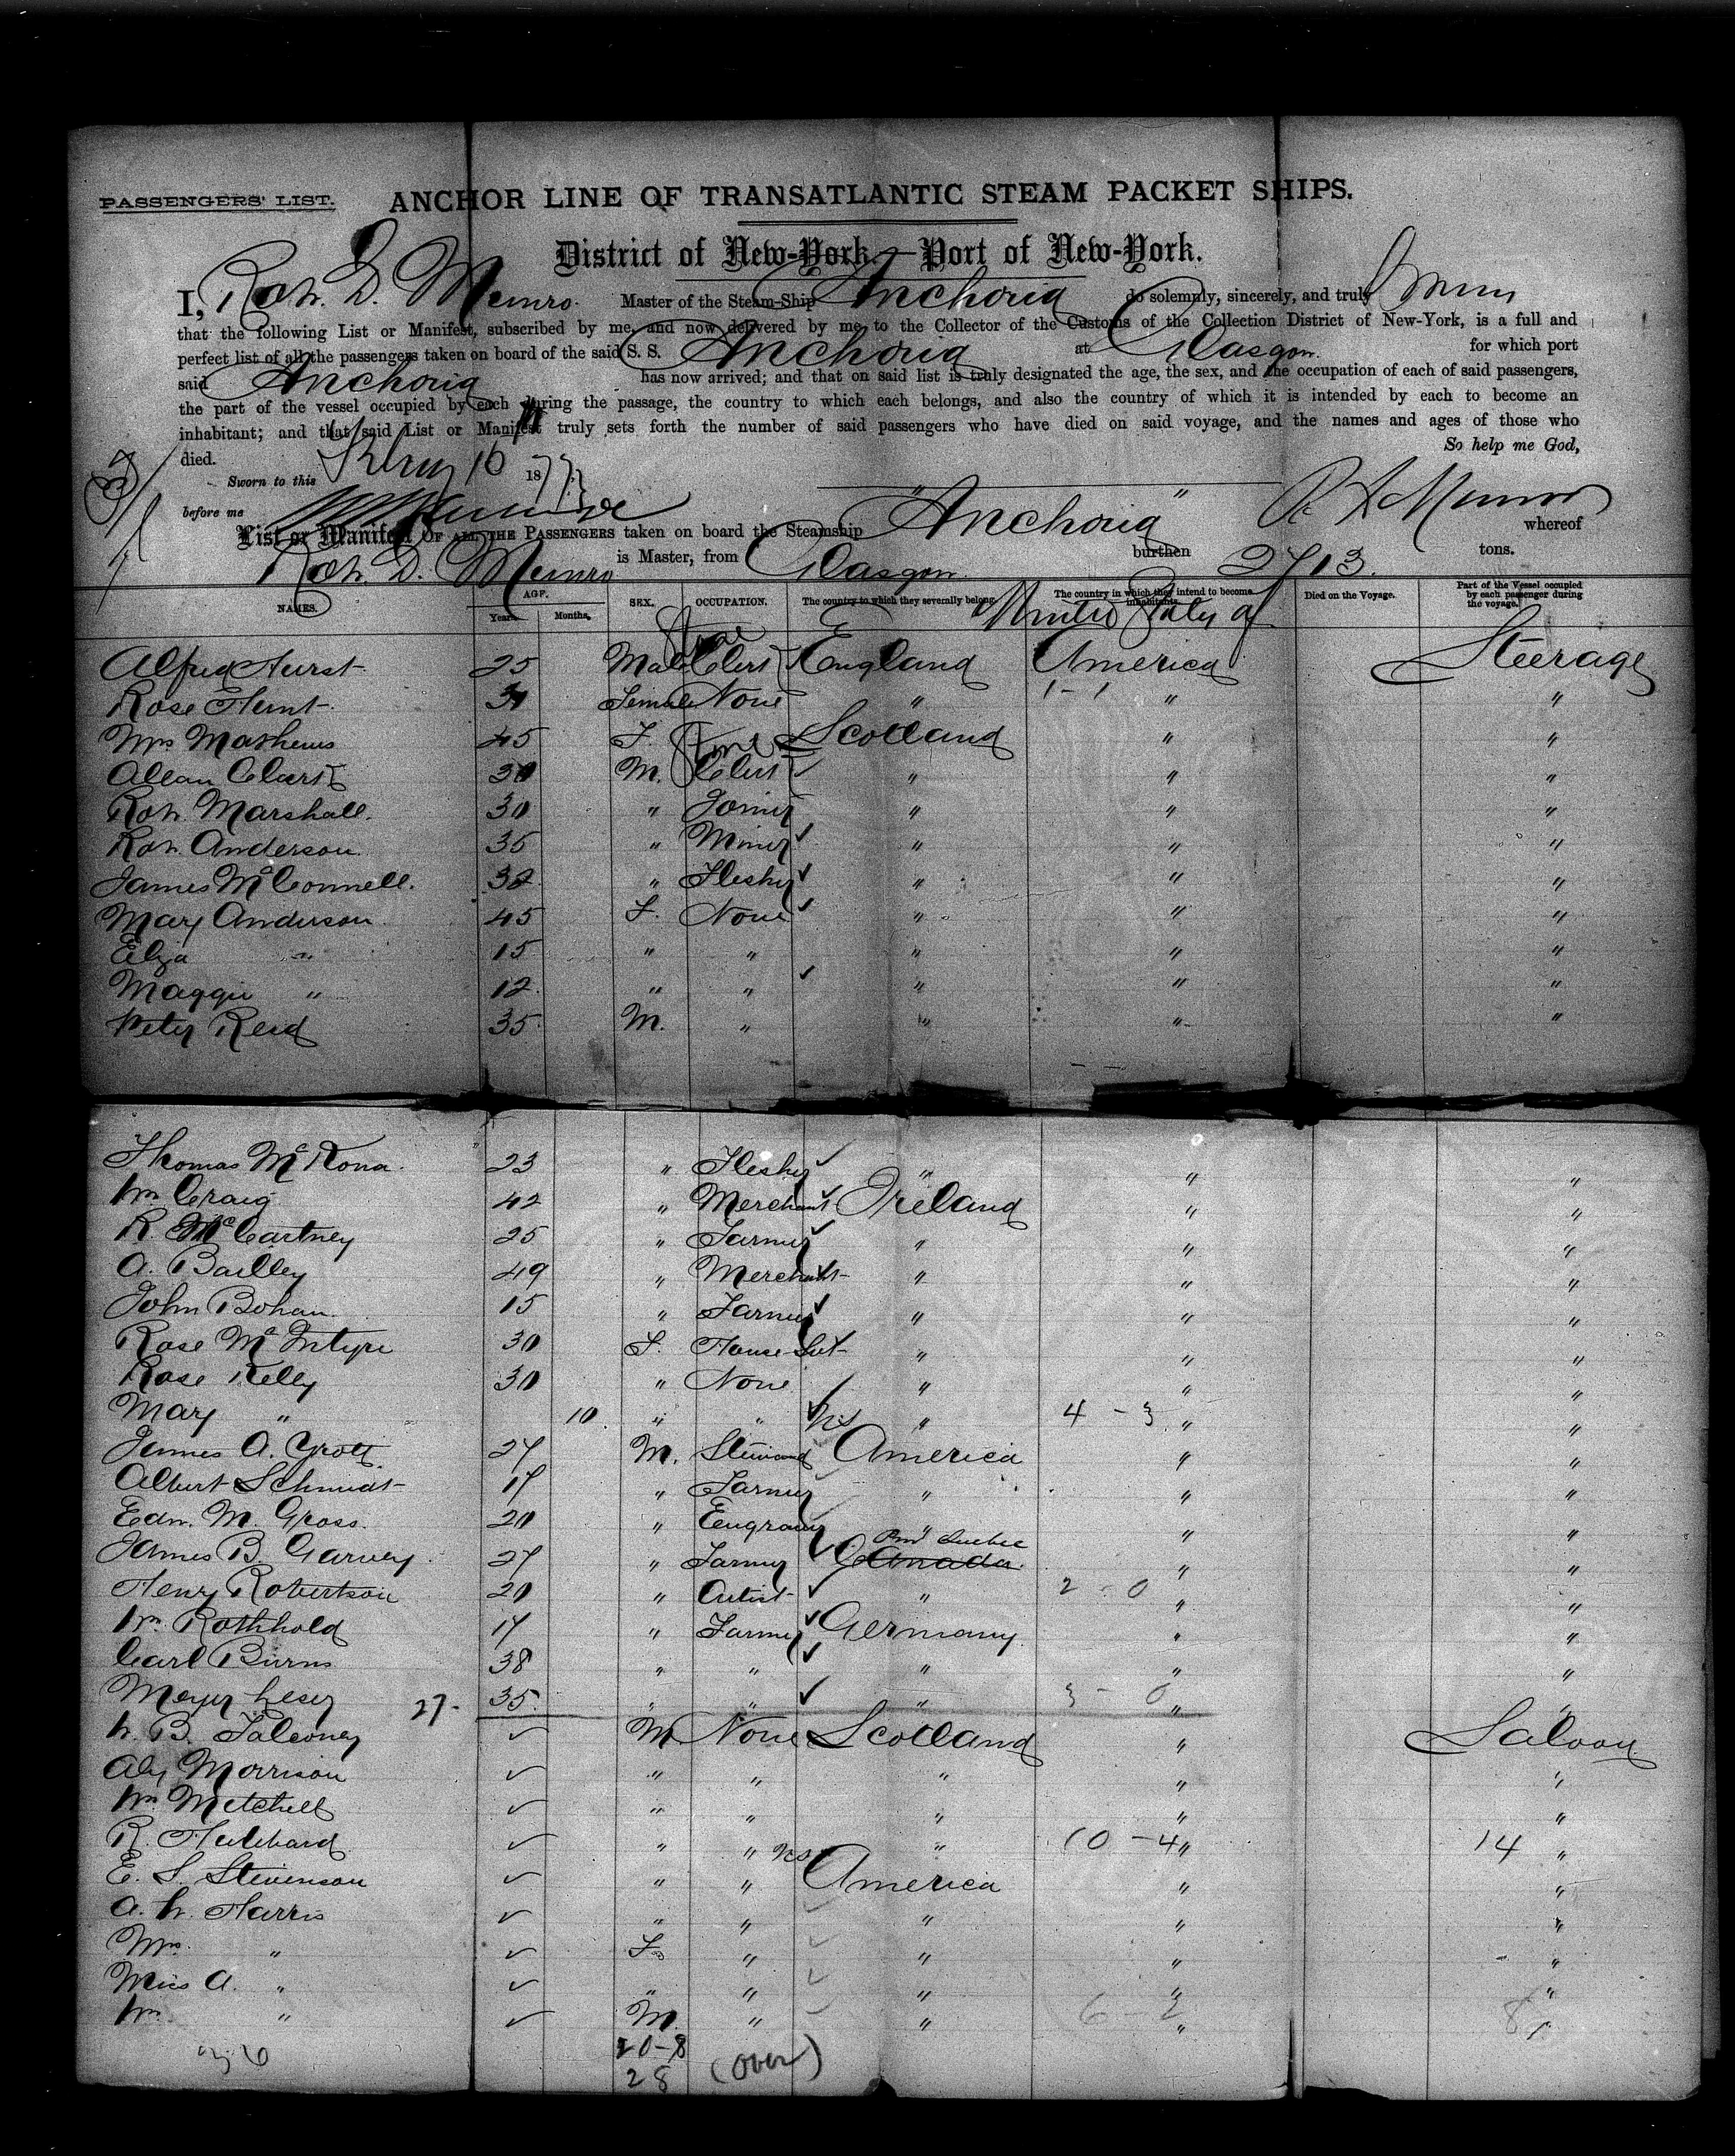 PASSENGERS' LIST. ANCHOR LINE OF TRANSATLANTIC STEAM PACKET SHIPS.
District of New-York.—Port of New-York.
I, Rob. D. Munro. Master of the Steam-Ship Anchoria do solemnly, sincerely, and truly
that the following List or Manifest, subscribed by me, and now delivered by me to the Collector of the Customs of the Collection District of New-York, is a full and
perfect list of all the passengers taken on board of the said S. S. Anchoria at Glasgow. for which port
said Anchoria has now arrived; and that on said list is truly designated the age, the sex, and the occupation of each of said passengers,
the part of the vessel occupied by each during the passage, the country to which each belongs, and also the country of which it is intended by each to become an
inhabitant; and that said List or Manifest truly sets forth the number of said passengers who have died on said voyage, and the names and ages of those who
died. So help me God,
Sworn to this 16 1877
before me R D Munro
List or Manifest OF ALL THE PASSENGERS taken on board the Steamship " Anchoria " whereof
Rob. D. Munro is Master, from Glasgow. burthen 2713. tons.
NAMES. AGE. Years. Months. SEX. OCCUPATION. The country to which they severally belong. The country in which they intend to become inhabitants. Died on the Voyage. Part of the Vessel occupied by each passenger during the voyage.
United States of
Alfred Hurst 25 Male Clerk England America Steerage
Rose Hunt 30 Female None " 1 - 1 " "
Mrs Mathews 45 F. Scotland " "
Allan Clark 30 M. Clerk " " "
Rob. Marshall. 30 " Joiner " " "
Rob. Anderson. 35 " Miner " " "
James McConnell. 32 " Flesher " " "
Mary Anderson 45 F. None " " "
Eliza " 15 " " " " "
Maggie " 12 " " " " "
Peter Reid 35 M. " " " "
Thomas McKona. 23 " Flesher " " "
Wm Craig 42 " Merchant Ireland " "
R. McCartney 25 " Farmer " " "
A. Bailley 49 " Merchant " " "
John Bohan. 15 " Farmer " " "
Rose McIntyre 30 F. House-Svt " " "
Rose Kelly 30 " None " " "
Mary " 10. " " " 4 - 3 " "
James A. Grott. 27 M. Steward America " "
Albert Schmidt 17 " Farmer " " "
Edw. M. Gross. 20 " Engraver " " "
James B. Garvey. 27 " Farmer Canada Quebec " "
Henry Robertson 20 " Artist " 2 - 0 " "
Wm Rothhold 17 " Farmer Germany " "
Carl Burns 38 " " " " "
Meyer Leser 27- 35. " " " 3 - 0 " "
W. B. Falconer ✓ M None Scotland " Saloon.
Alex Morrison ✓ " " " " "
Wm Mitchell ✓ " " " " "
R. Hubbard ✓ " " " 10 - 4 " 14 "
E. S. Stevenson ✓ " " America " "
A. W. Harris ✓ " " " " "
Mrs. " ✓ F. " " " "
Miss A. " ✓ " " " " "
Wm " ✓ M. " " 6 - 2 " 8
36 20-8
28 (over)